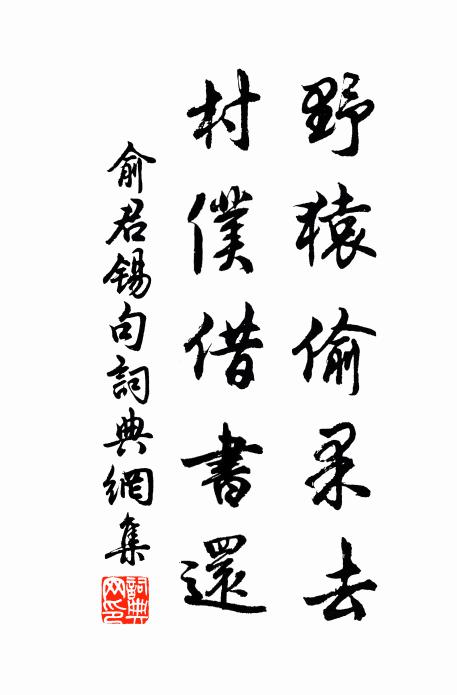 野猿偷果去
村僕借書還
俞君錫句詞典網集
詞典網印